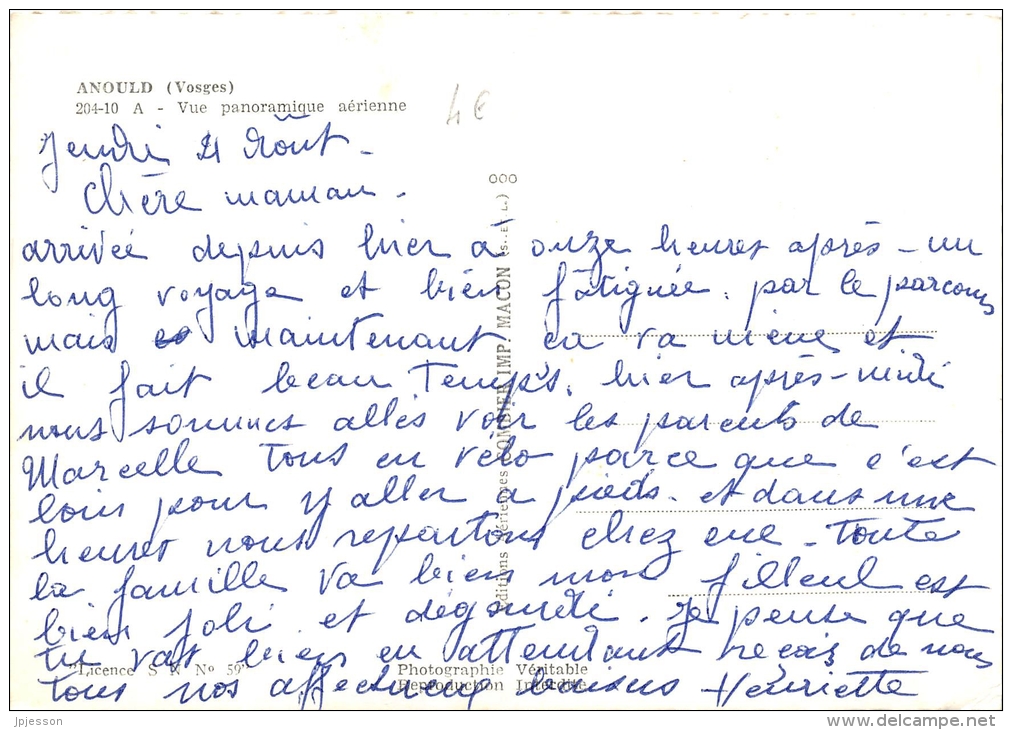 ANOULD (Vosges)
204-10 A - Vue panoramique aérienne
4€
Jeudi 21 Août -
Chère maman.
arrivée depuis hier à onze heures après - un
long voyage et bien fatiguée. par le parcours
mais maintenant ça va mieux et
il fait beau temps. hier après-midi
nous sommes allés voir les parents de
Marcelle tous en vélo parce que c'est
loin pour y aller à pieds. et dans une
heures nous repartons chez eue - toute
la famille va bien mon filleul est
bien joli et dégourdi. je pense que
tu vas bien en attendant reçois de nous
tous nos affectueux baisers Henriette
OOO
Editions Aériennes COMBIER IMP. MACON (S.-ET-L.)
"Licence S N N° 59"
Photographie Véritable
Reproduction Interdite
jpjesson
www.delcampe.net